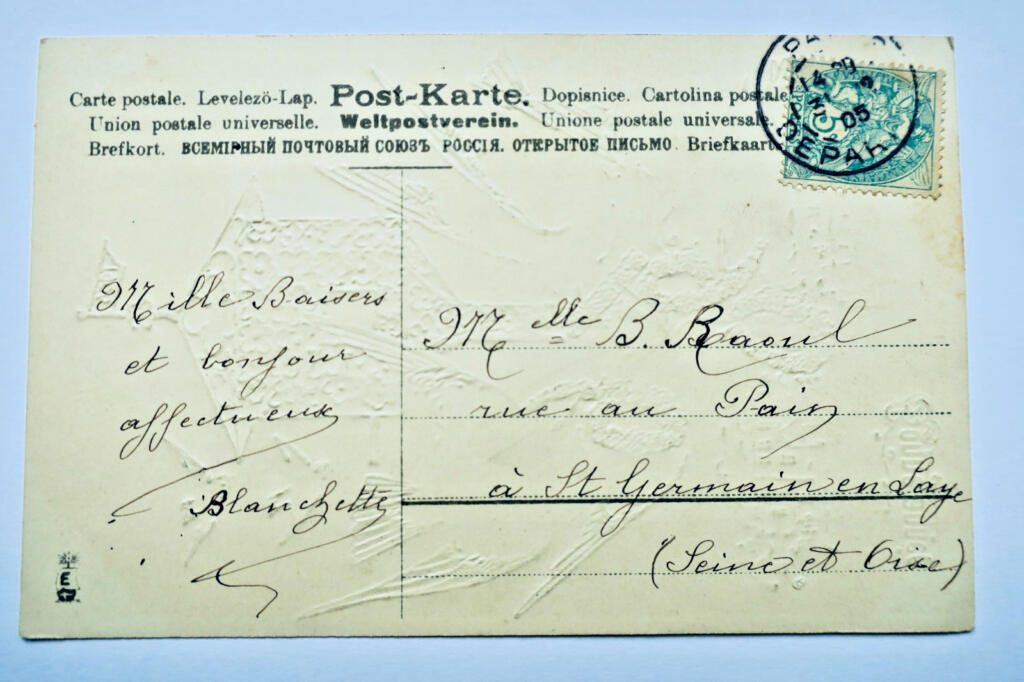 Carte postale. Levelezö-Lap. Post-Karte. Dopisnice. Cartolina postale
Union postale universelle. Weltpostverein. Unione postale universale.
Brefkort. ВСЕМІРНЫЙ ПОЧТОВЫЙ СОЮЗЪ РОССІЯ. ОТКРЫТОЕ ПИСЬМО. Briefkaart.
05
DEPART
5
Mille Baisers
et bonjour
affectueux
Blanchette
Mlle B. Raoul
rue au Pain
à St Germain en Laye
(Seine et Oise)
E